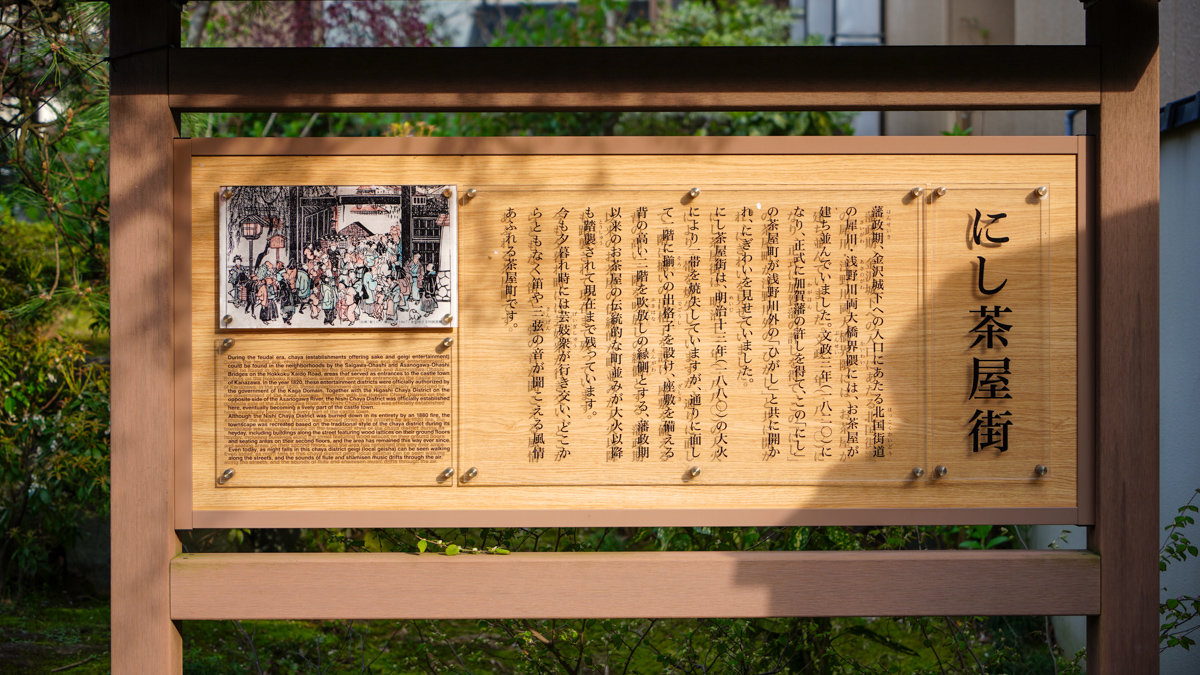 にし茶屋街
藩政期、金沢城下への入口にあたる北国街道
の犀川、浅野川両大橋界隈には、お茶屋が
建ち並んでいました。文政三年(一八二〇)に
なり、正式に加賀藩の許しを得て、この「にし」
の茶屋町が浅野川外の「ひがし」と共に開か
れ、にぎわいを見せていました。
にし茶屋街は、明治十三年(一八八〇)の大火
により一帯を焼失していますが、通りに面し
て一階に揃いの出格子を設け、座敷を備える
背の高い二階を吹放しの縁側とする、藩政期
以来のお茶屋の伝統的な町並みが大火以降
も踏襲されて現在まで残っています。
今も夕暮れ時には芸妓衆が行き交い、どこか
らともなく笛や三弦の音が聞こえる風情
あふれる茶屋町です。
During the feudal era, chaya (establishments offering sake and geigi entertainment)
could be found in the neighborhoods by the Saigawa-Ohashi and Asanogawa-Ohashi
Bridges on the Hokkoku Kaido Road, areas that served as entrances to the castle town
of Kanazawa. In the year 1820, these entertainment districts were officially authorized by
the government of the Kaga Domain. Together with the Higashi Chaya District on the
opposite side of the Asanogawa River, the Nishi Chaya District was officially established
here, eventually becoming a lively part of the castle town.
Although the Nishi Chaya District was burned down in its entirety by an 1880 fire, the
townscape was recreated based on the traditional style of the chaya district during its
heyday, including buildings along the street featuring wood lattices on their ground floors
and seating areas on their second floors, and the area has remained this way ever since.
Even today, as night falls in this chaya district geigi (local geisha) can be seen walking
along the streets, and the sounds of flute and shamisen music drifts through the air.